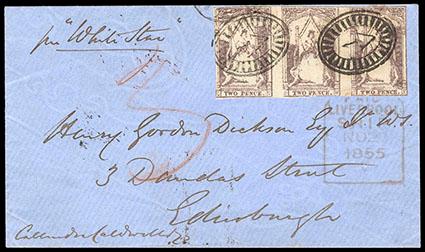 per "White Star"
TWO PENCE. TWO PENCE. TWO PENCE.
LIVERPOOL
1855
3
Henry Gordon Dickson Esq
3 Dundas Street
Edinburgh